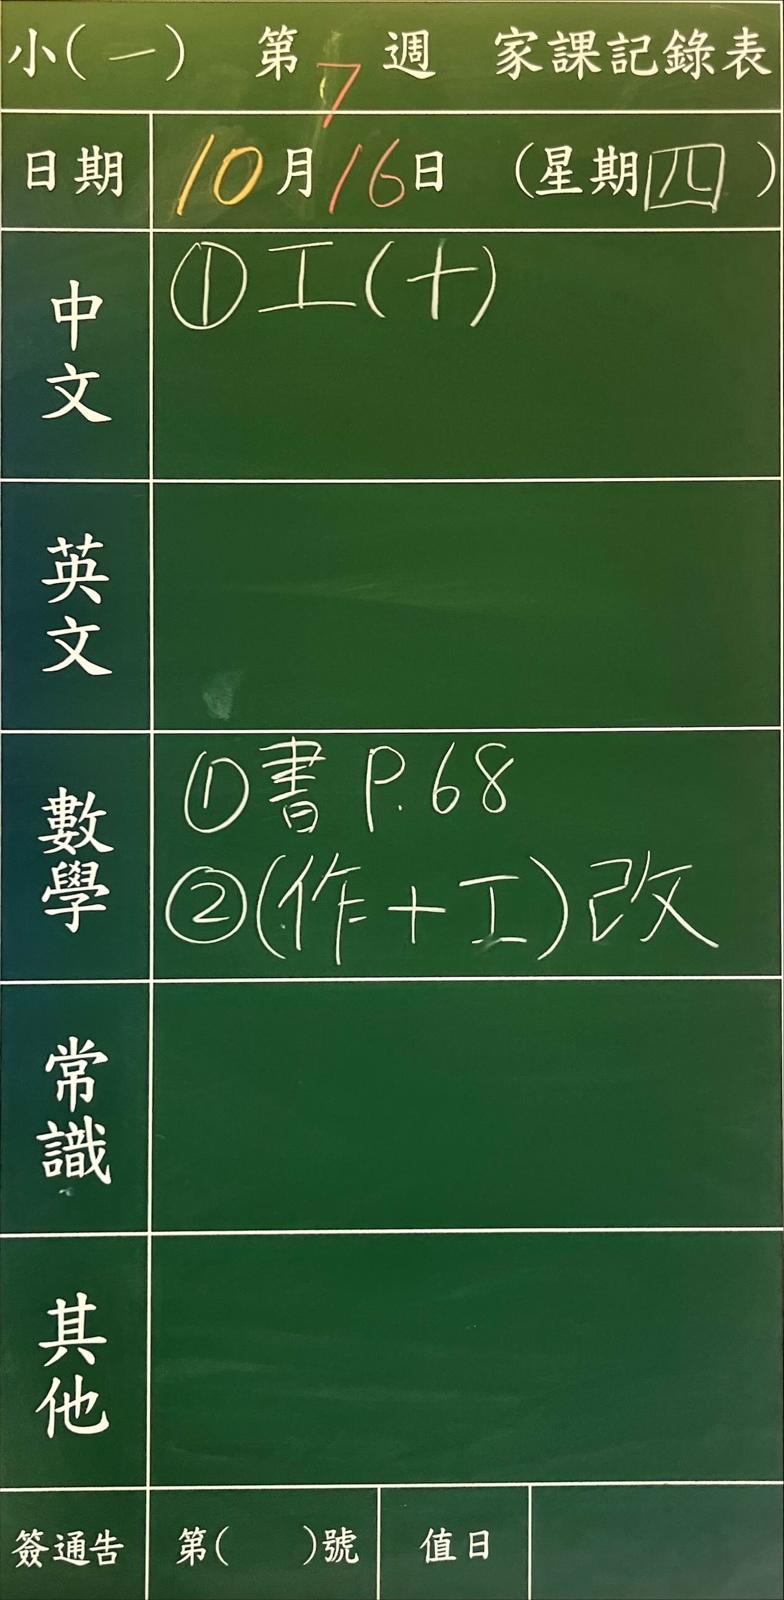 小(一) 第7週 家課記錄表
日期 10月16日 (星期四)
中文 ①工(十)
英文
數學 ①書 P.68
②(作+工)改
常識
其他
簽通告 第( )號 值日